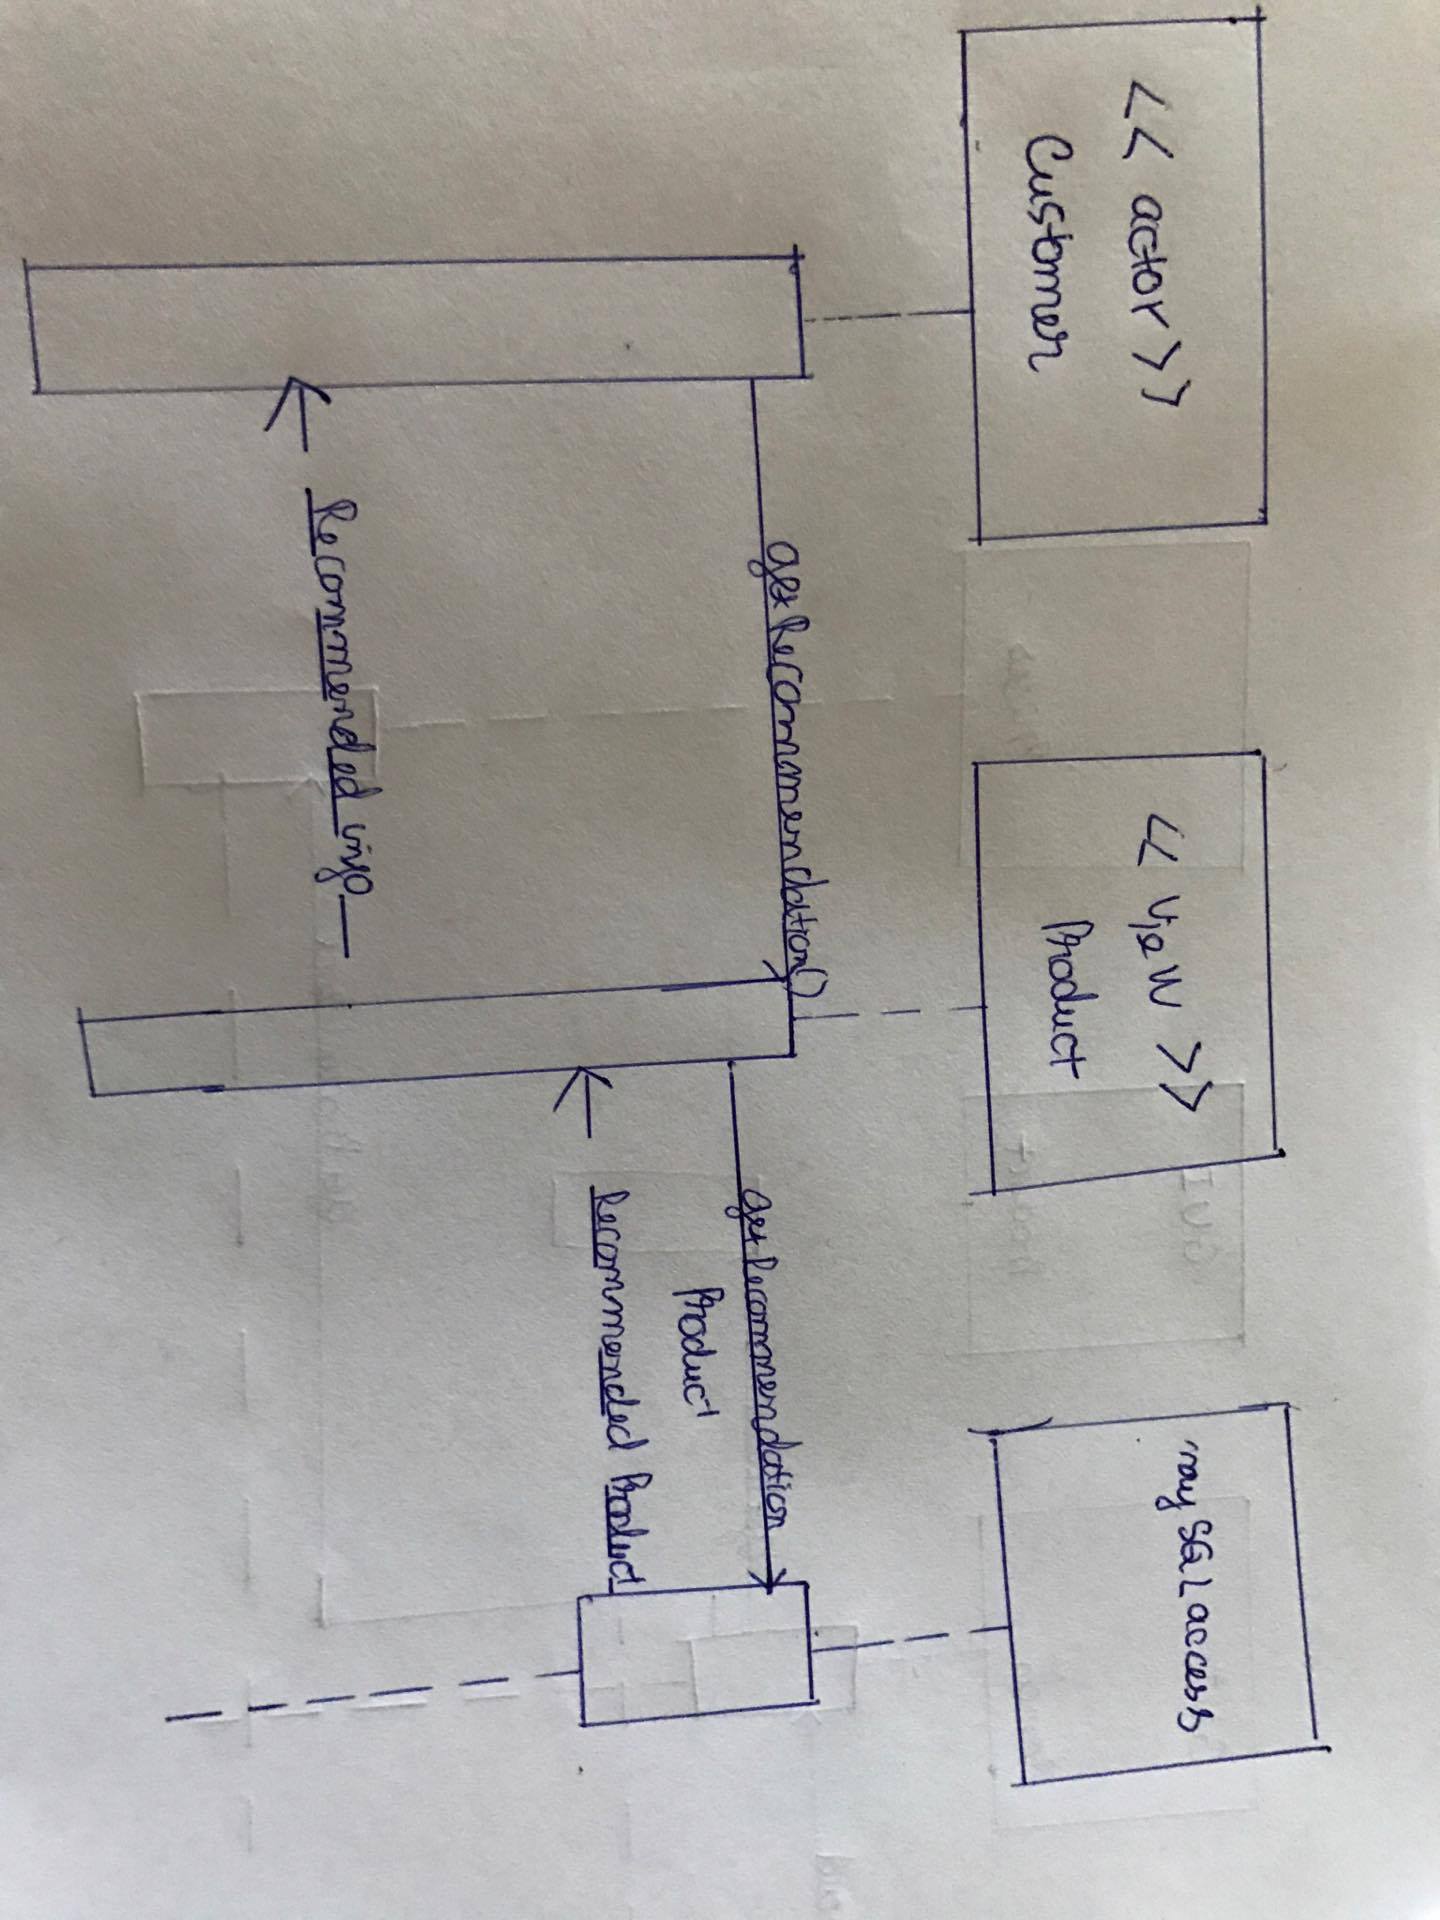 << actor >>
Customer
<< view >>
Product
mysqlaccess
getRecommendation()
getRecommendation
Product
Recommended Product
Recommended info